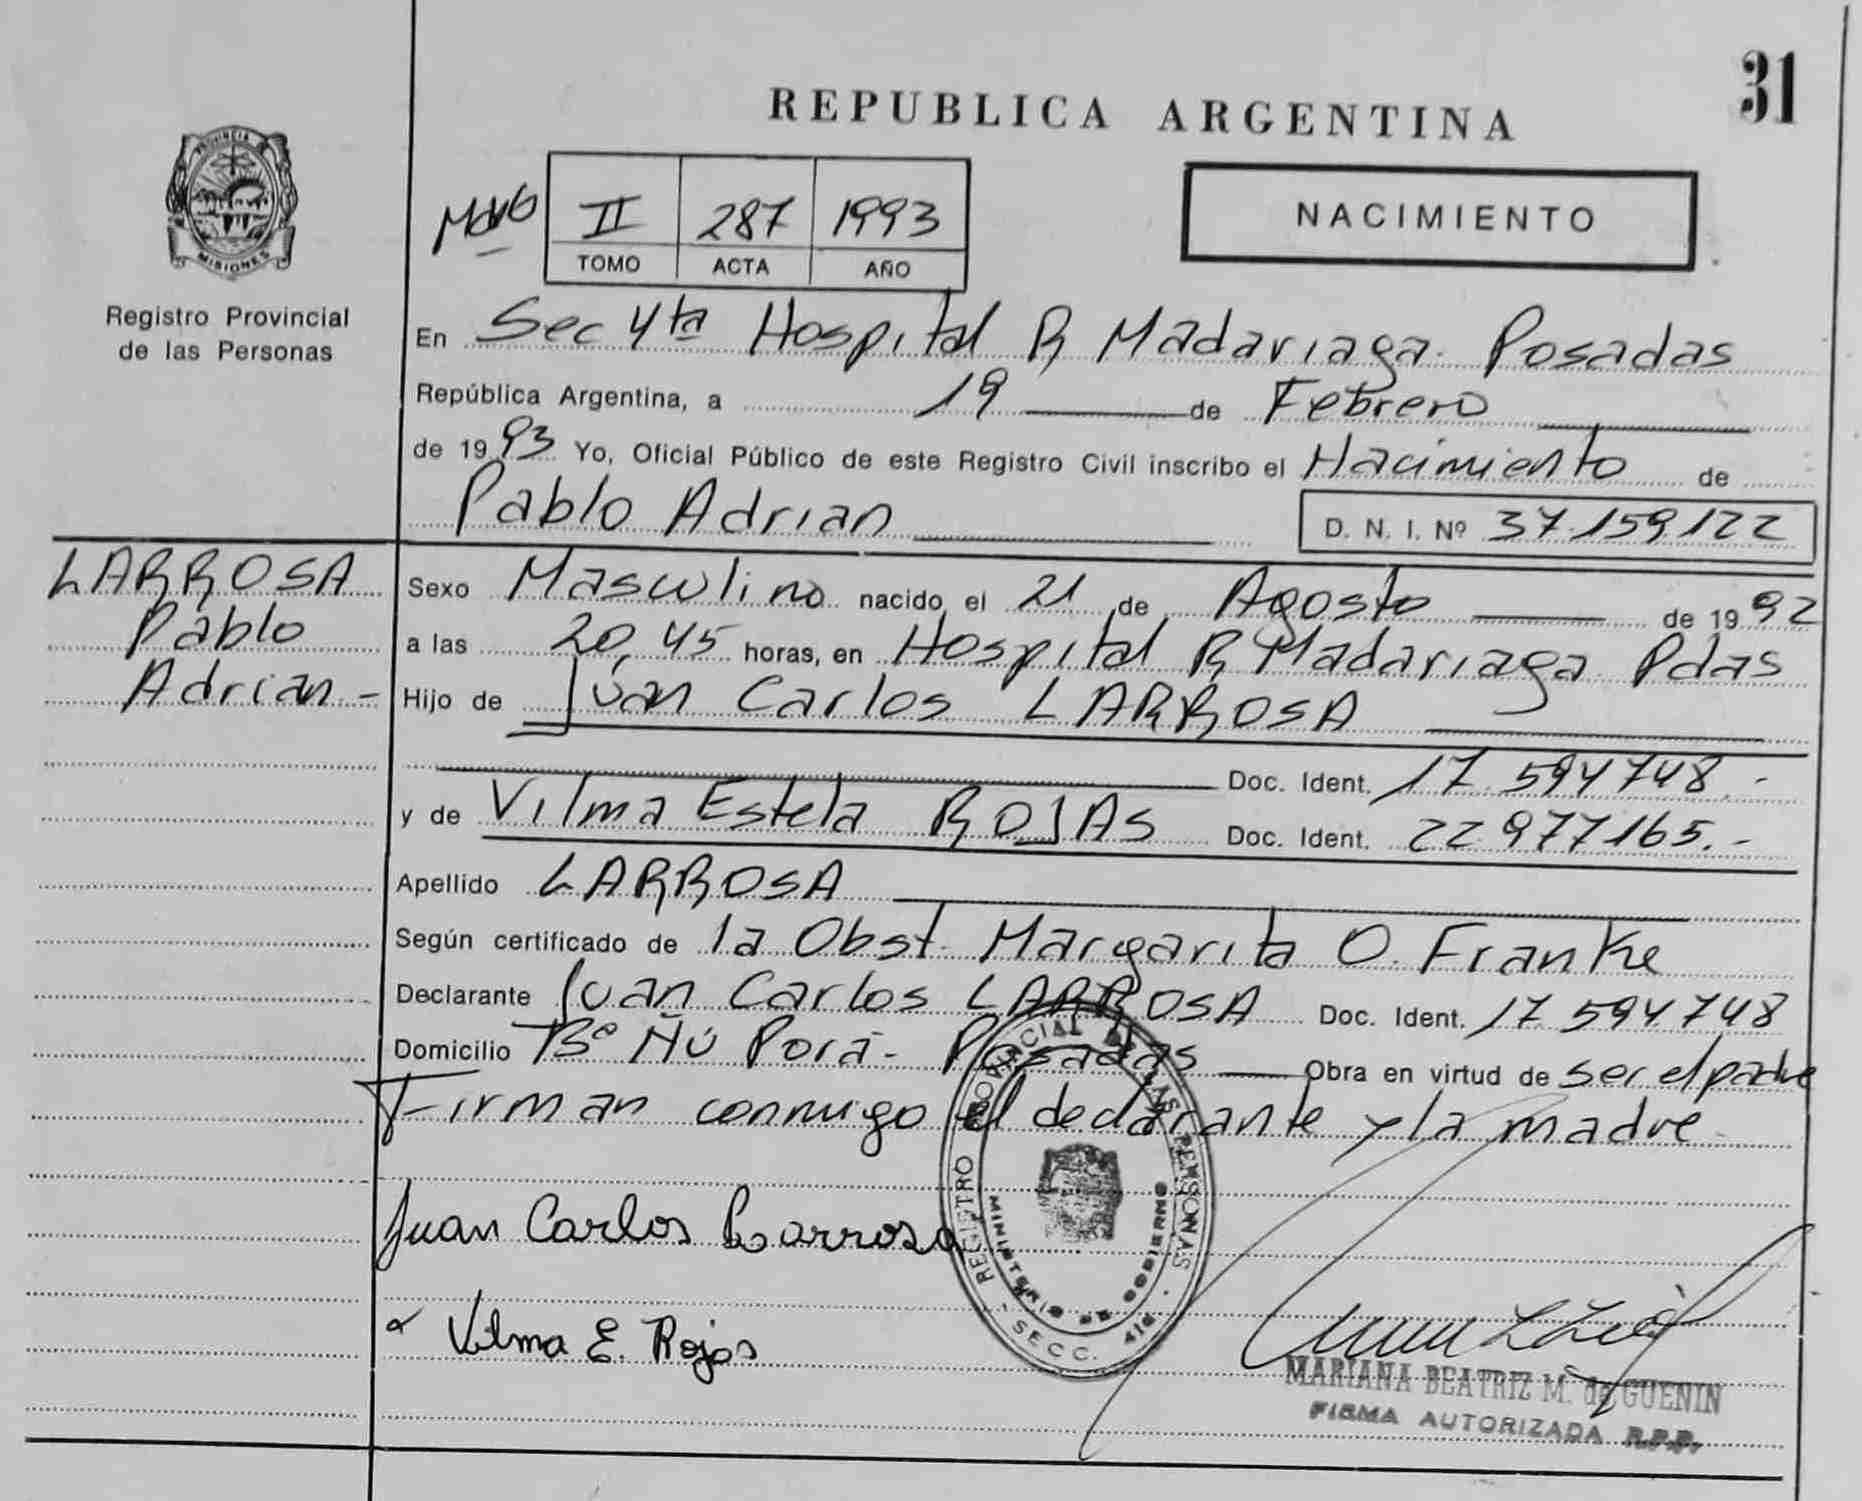 31
REPUBLICA ARGENTINA
PROVINCIA DE
MISIONES
Registro Provincial
de las Personas
II 287 1993
TOMO ACTA AÑO
NACIMIENTO
En Sec 4ta Hospital R Madariaga Posadas
República Argentina, a 19 de Febrero
de 1993 Yo, Oficial Público de este Registro Civil inscribo el Nacimiento de
Pablo Adrian
D. N. I. Nº 37.159.122
LARROSA
Pablo
Adrian -
Sexo Masculino nacido el 21 de Agosto de 1992
a las 20,45 horas, en Hospital R Madariaga Pdas
Hijo de Juan Carlos LARROSA
Doc. Ident. 17.594748.-
y de Vilma Estela ROJAS Doc. Ident. 22977165.-
Apellido LARROSA
Según certificado de la Obst. Margarita O. Franke
Declarante Juan Carlos LARROSA Doc. Ident. 17.594.748
Domicilio Bº Ñú Porá - Posadas Obra en virtud de ser el padre
Firman conmigo el declarante y la madre
Juan Carlos Larrosa
Vilma E. Rojas
REGISTRO PROVINCIAL DE LAS PERSONAS
MINISTERIO DE GOBIERNO
SECC. 4ta
MARIANA BEATRIZ M. de GUENIN
FIRMA AUTORIZADA R.P.P.